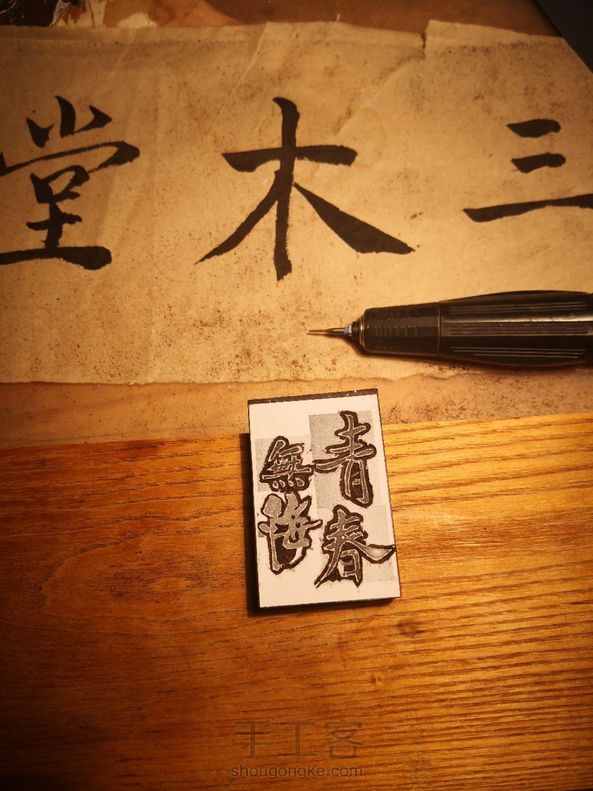 三木堂
青春
無悔
手工客
shougongke.com